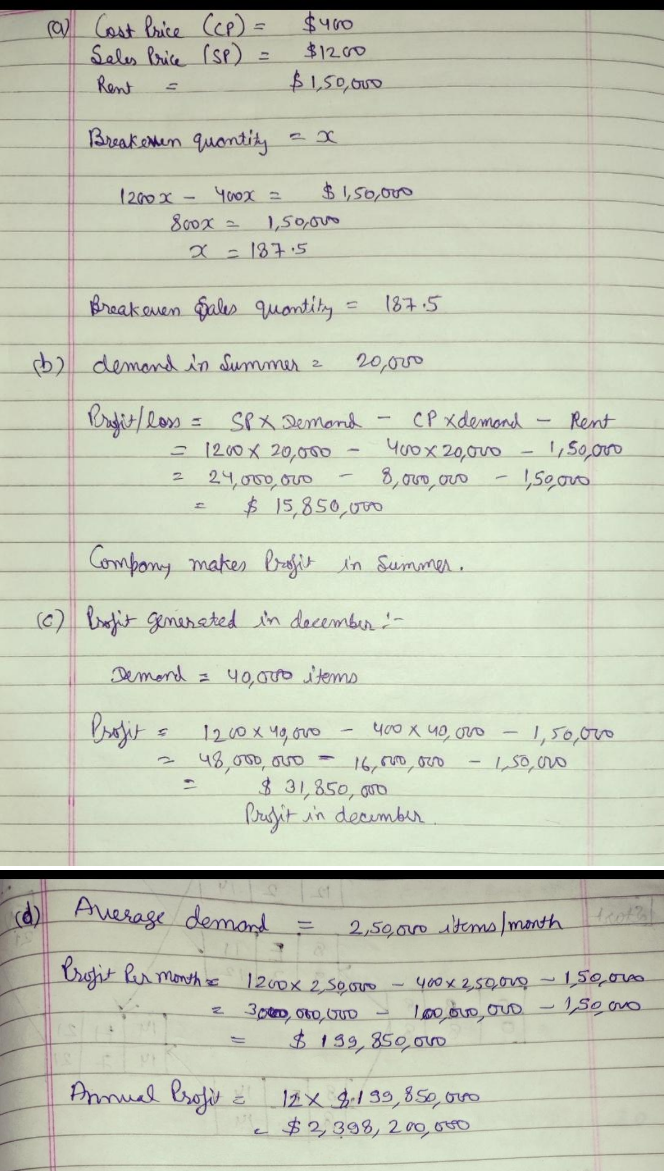 (a) Cost Price (CP) = $400
Sales Price (SP) = $1200
Rent = $1,50,000
Breakeven quantity = x
1200x - 400x = $1,50,000
800x = 1,50,000
x = 187.5
Breakeven Sales quantity = 187.5
(b) demand in Summer = 20,000
Profit/loss = SP x Demand - CP x demand - Rent
= 1200 x 20,000 - 400 x 20,000 - 1,50,000
= 24,000,000 - 8,000,000 - 1,50,000
= $ 15,850,000
Company makes Profit in Summer.
(c) Profit generated in december :-
Demand = 40,000 items
Profit = 1200 x 40,000 - 400 x 40,000 - 1,50,000
= 48,000,000 - 16,000,000 - 1,50,000
= $ 31,850,000
Profit in december.
(d) Average demand = 2,50,000 items/month
Profit Per month = 1200 x 2,50,000 - 400 x 2,50,000 - 1,50,000
= 300,000,000 - 100,000,000 - 1,50,000
= $ 199,850,000
Annual Profit = 12 x $ 199,850,000
= $ 2,398,200,000